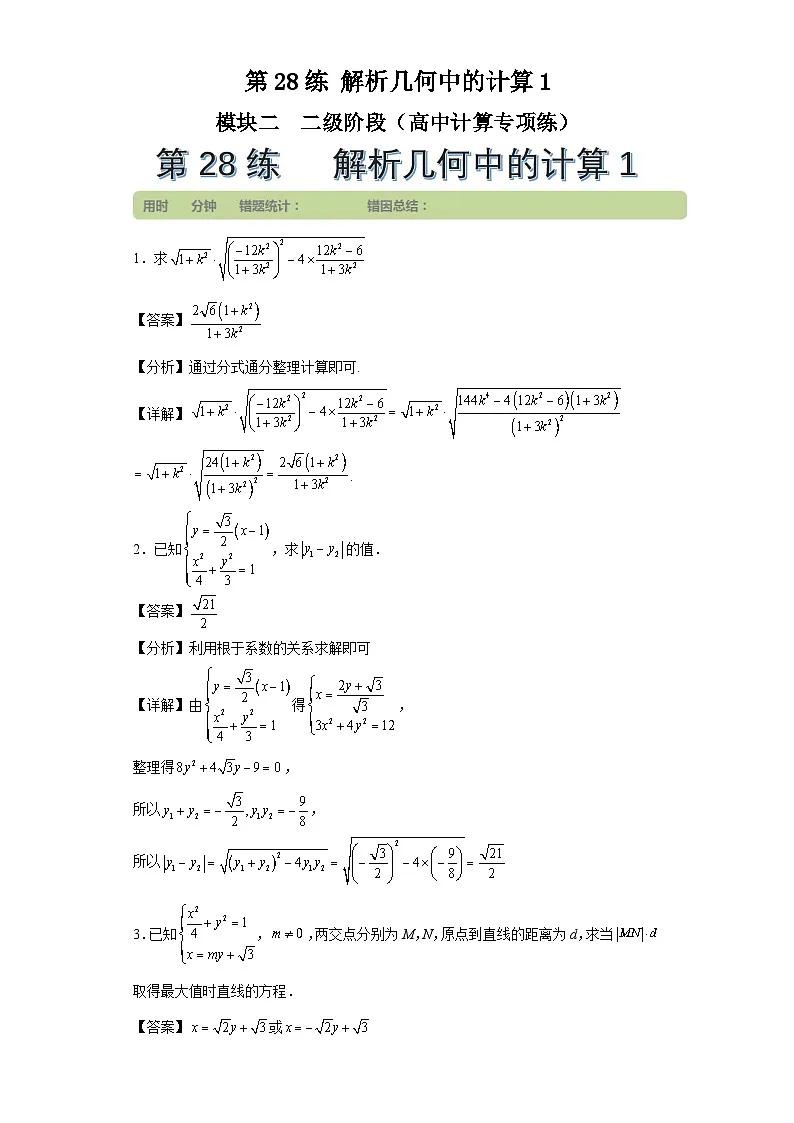 第 28 练 解析几何中的计算 1
模块二 二级阶段（高中计算专项练）
第 28 练 解析几何中的计算 1
用时 分钟 错题统计： 错因总结：
1．求 $\sqrt{1+k^2}\cdot\sqrt{\left(\frac{-12k^2}{1+3k^2}\right)^2-4\times\frac{12k^2-6}{1+3k^2}}$
【答案】$\frac{2\sqrt{6}\left(1+k^2\right)}{1+3k^2}$
【分析】通过分式通分整理计算即可.
【详解】$\sqrt{1+k^2}\cdot\sqrt{\left(\frac{-12k^2}{1+3k^2}\right)^2-4\times\frac{12k^2-6}{1+3k^2}}=\sqrt{1+k^2}\cdot\sqrt{\frac{144k^4-4\left(12k^2-6\right)\left(1+3k^2\right)}{\left(1+3k^2\right)^2}}$
$=\sqrt{1+k^2}\cdot\sqrt{\frac{24\left(1+k^2\right)}{\left(1+3k^2\right)^2}}=\frac{2\sqrt{6}\left(1+k^2\right)}{1+3k^2}$.
2．已知$\begin{cases}y=\frac{\sqrt{3}}{2}(x-1)\\\frac{x^2}{4}+\frac{y^2}{3}=1\end{cases}$，求$|y_1-y_2|$的值．
【答案】$\frac{\sqrt{21}}{2}$
【分析】利用根于系数的关系求解即可
【详解】由$\begin{cases}y=\frac{\sqrt{3}}{2}(x-1)\\\frac{x^2}{4}+\frac{y^2}{3}=1\end{cases}$得$\begin{cases}x=\frac{2y+\sqrt{3}}{\sqrt{3}}\\3x^2+4y^2=12\end{cases}$，
整理得$8y^2+4\sqrt{3}y-9=0$，
所以$y_1+y_2=-\frac{\sqrt{3}}{2},y_1y_2=-\frac{9}{8}$，
所以$|y_1-y_2|=\sqrt{(y_1+y_2)^2-4y_1y_2}=\sqrt{\left(-\frac{\sqrt{3}}{2}\right)^2-4\times\left(-\frac{9}{8}\right)}=\frac{\sqrt{21}}{2}$
3.已知$\begin{cases}\frac{x^2}{4}+y^2=1\\x=my+\sqrt{3}\end{cases}$，$m\neq0$,两交点分别为 M,N,原点到直线的距离为 d,求当$|MN|\cdot d$
取得最大值时直线的方程．
【答案】$x=\sqrt{2}y+\sqrt{3}$或$x=-\sqrt{2}y+\sqrt{3}$